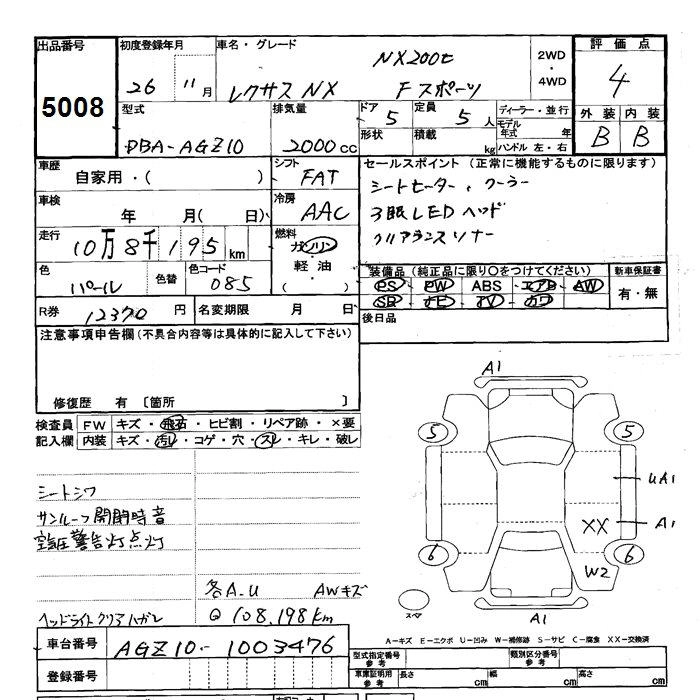 出品番号 初度登録年月 車名・グレード NX200t 2WD 評価点
5008 26 11月 レクサス NX Fスポーツ ・ 4WD 4
型式 排気量 ドア 5 定員 5人 ディーラー・並行 外装 内装
DBA-AGZ10 2000cc 形状 積載 kg モデル年式 年 ハンドル 左・右 B B
車歴 シフト セールスポイント (正常に機能するものに限ります)
自家用・( ) FAT シートヒーター、クーラー
車検 冷房 3眼LEDヘッド
年 月( 日) AAC クリアランスソナー
走行 燃料
10万8千195km ガソリン
軽油・ 装備品 (純正品に限り○をつけてください) 新車保証書
色 色替 色コード ( ) PS PW ABS エアB AW 有・無
パール 085 SR ナビ TV カワ
R券 12370円 名変期限 月 日 後日品
注意事項申告欄 (不具合内容等は具体的に記入して下さい)
修復歴 有 〔箇所 〕
検査員 FW キズ・飛石・ヒビ割・リペア跡・×要
記入欄 内装 キズ・汚レ・コゲ・穴・スレ・キレ・破レ
A1
5 5
UA1
XX A1
6 6
W2
スペア
A1
シートシワ
サンルーフ開閉時音
空気圧警告灯点灯
各A.U AWキズ
ヘッドライトクリアハガレ ◎108,198km
A-キズ E-エクボ U-凹み W-補修跡 S-サビ C-腐食 XX-交換済
車台番号 AGZ10-1003476
型式指定番号 参考 類別区分番号 参考
登録番号 車庫証明用 参考 長さ cm 幅 cm 高さ cm